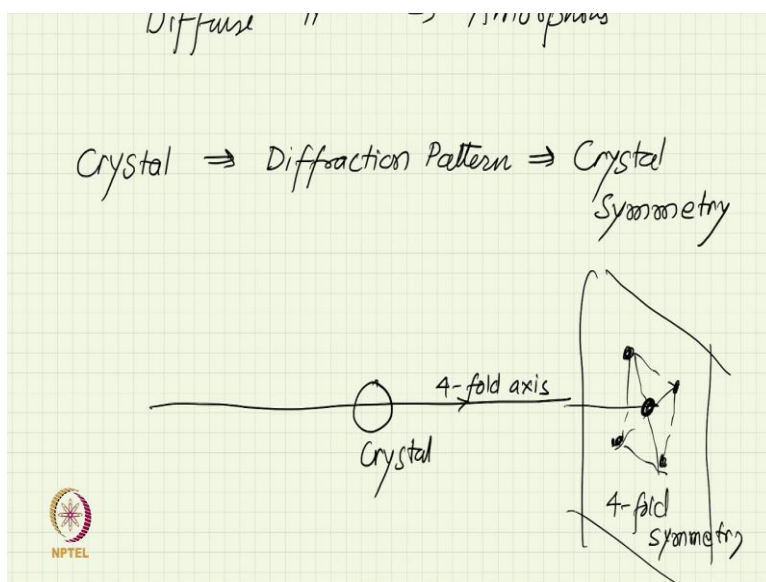 Diffuse " ⇒ Amorphous
Crystal ⇒ Diffraction Pattern ⇒ Crystal
Symmetry
4-fold axis
Crystal
4-fold
symmetry
NPTEL